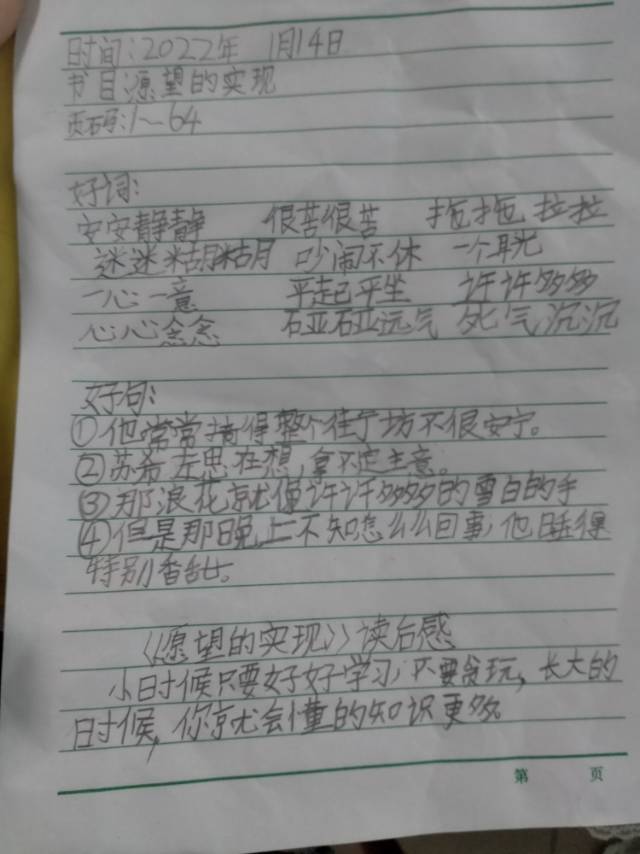 时间:2022年 1月14日
书目:愿望的实现
页码:1~64
好词:
安安静静 很苦很苦 拖拖拉拉
迷迷糊糊 吵闹不休 一个耳光
一心一意 平起平坐 许许多多
心心念念 死气沉沉
好句:
①他常常搞得整个街坊不很安宁。
②苏希左思右想,拿不定主意。
③那浪花就像许许多多的雪白的手
④但是那晚上不知怎么么回事,他睡得
特别香甜。
《愿望的实现》读后感
小时候只要好好学习,不要贪玩,长大的
时候,你就会懂的知识更多
第 页